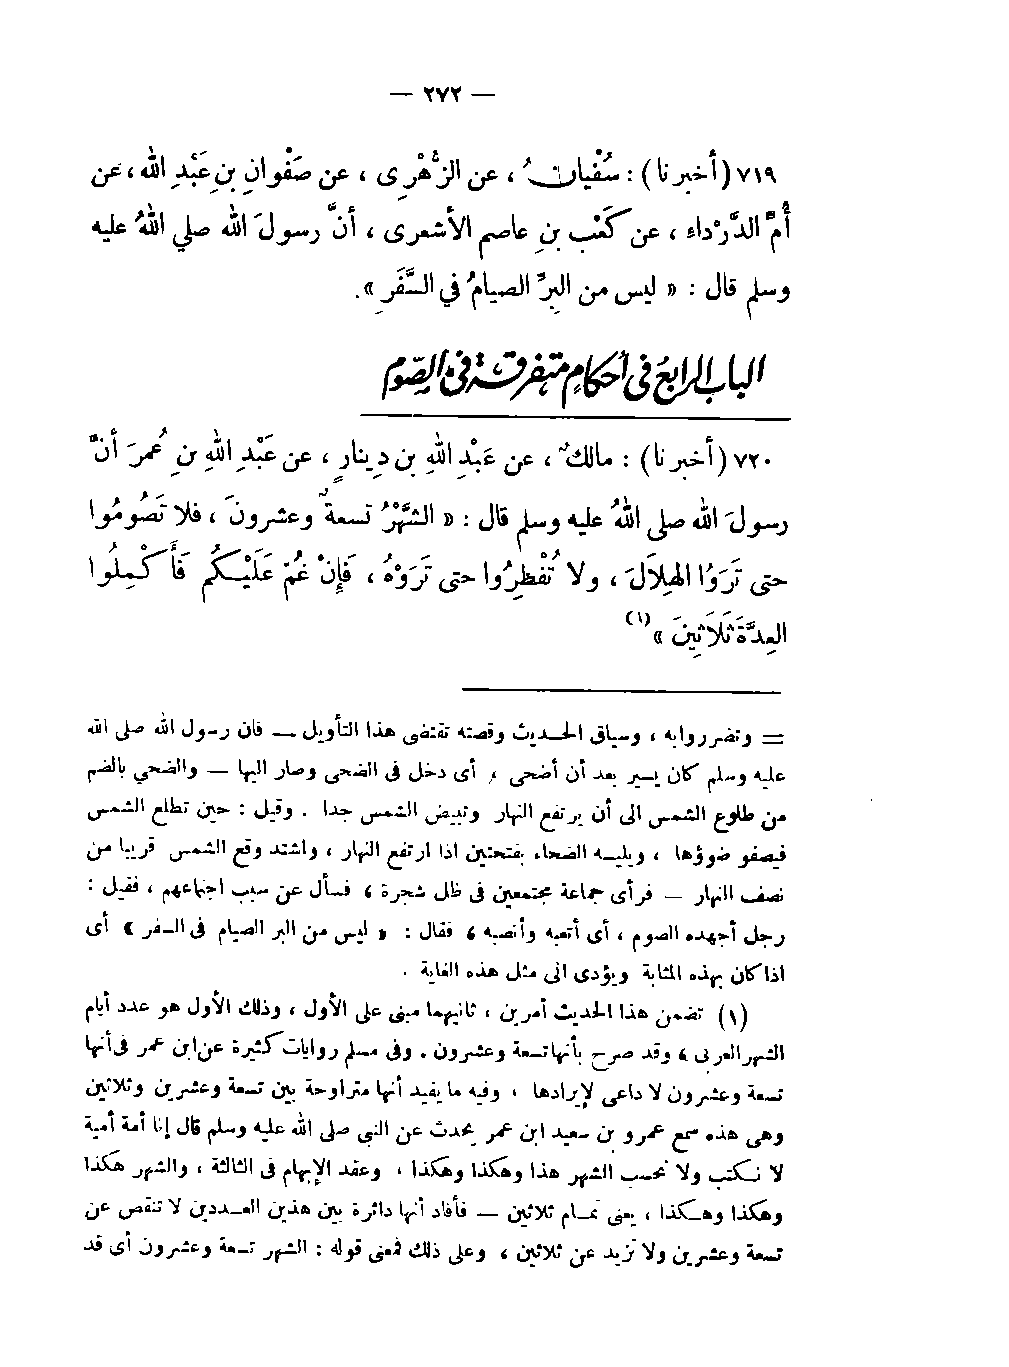 — ٢٧٢ —
٧١٩ (أخبرنا) : سُفْيانُ ، عن الزُّهْرِى ، عن صَفْوانِ بنِ عَبْدِ الله ، عن
أُمِّ الدَّرْداء ، عن كَعْبِ بنِ عاصم الأشعرى ، أنَّ رسولَ الله صلي اللهُ عليه
وسلم قال : « ليس من البِرِّ الصيامُ في السَّفَرِ » .
الباب الرابع فى أحكام متفرقة فى الصوم
٧٢٠ (أخبرنا) : مالكٌ ، عن عَبْدِ اللهِ بن دِينارٍ ، عن عَبْدِ اللهِ بنِ عُمرَ أنَّ
رسولَ الله صلى اللهُ عليه وسلم قال : « الشَّهْرُ تسعةٌ وعشرونَ ، فلا تَصُومُوا
حتى تَرَوُا الهِلَالَ ، ولا تُفْطِرُوا حتى تَرَوْهُ ، فَإِنْ غُمَّ عَلَيْكُم فَأَكْمِلُوا
العِدَّةَ ثَلَاثِينَ » (١)
= وتضرروابه ، وسياق الحديث وقصته تقتضى هذا التأويل — فان رسول الله صلى الله
عليه وسلم كان يسير بعد أن أضحى ، أى دخل فى الضحى وصار اليها — والضحي بالضم
من طلوع الشمس الى أن يرتفع النهار وتبيض الشمس جدا . وقيل : حين تطلع الشمس
فيصفو ضوؤها ، ويليه الضحاء بفتحتين اذا ارتفع النهار ، واشتد وقع الشمس قريبا من
نصف النهار — فرأى جماعة مجتمعين فى ظل شجرة ، فسأل عن سبب اجتماعهم ، فقيل :
رجل أجهده الصوم ، أى أتعبه وأنصبه ، فقال : « ليس من البر الصيام فى السفر » أى
اذا كان بهذه المثابة ويؤدى الى مثل هذه الغاية .
(١) تضمن هذا الحديث أمرين ، ثانيهما مبنى على الأول ، وذلك الأول هو عدد أيام
الشهر العربى ، وقد صرح بأنها تسعة وعشرون . وفى مسلم روايات كثيرة عن ابن عمر فى أنها
تسعة وعشرون لا داعى لإيرادها ، وفيه ما يفيد أنها متراوحة بين تسعة وعشرين وثلاثين
وهى هذه سمع عمرو بن سعيد ابن عمر يحدث عن النبى صلى الله عليه وسلم قال إنا أمة أمية
لا نكتب ولا نحسب الشهر هذا وهكذا وهكذا ، وعقد الإبهام فى الثالثة ، والشهر هكذا
وهكذا وهكذا ، يعنى تمام ثلاثين — فأفاد أنها دائرة بين هذين العددين لا تنقص عن
تسعة وعشرين ولا تزيد عن ثلاثين ، وعلى ذلك فمعنى قوله : الشهر تسعة وعشرون أى قد